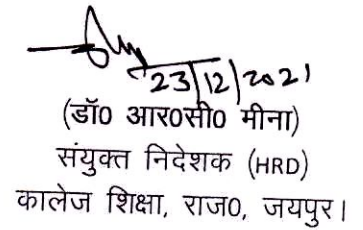 23/12/2021
(डॉ0 आर0सी0 मीना)
संयुक्त निदेशक (HRD)
कालेज शिक्षा, राज0, जयपुर।